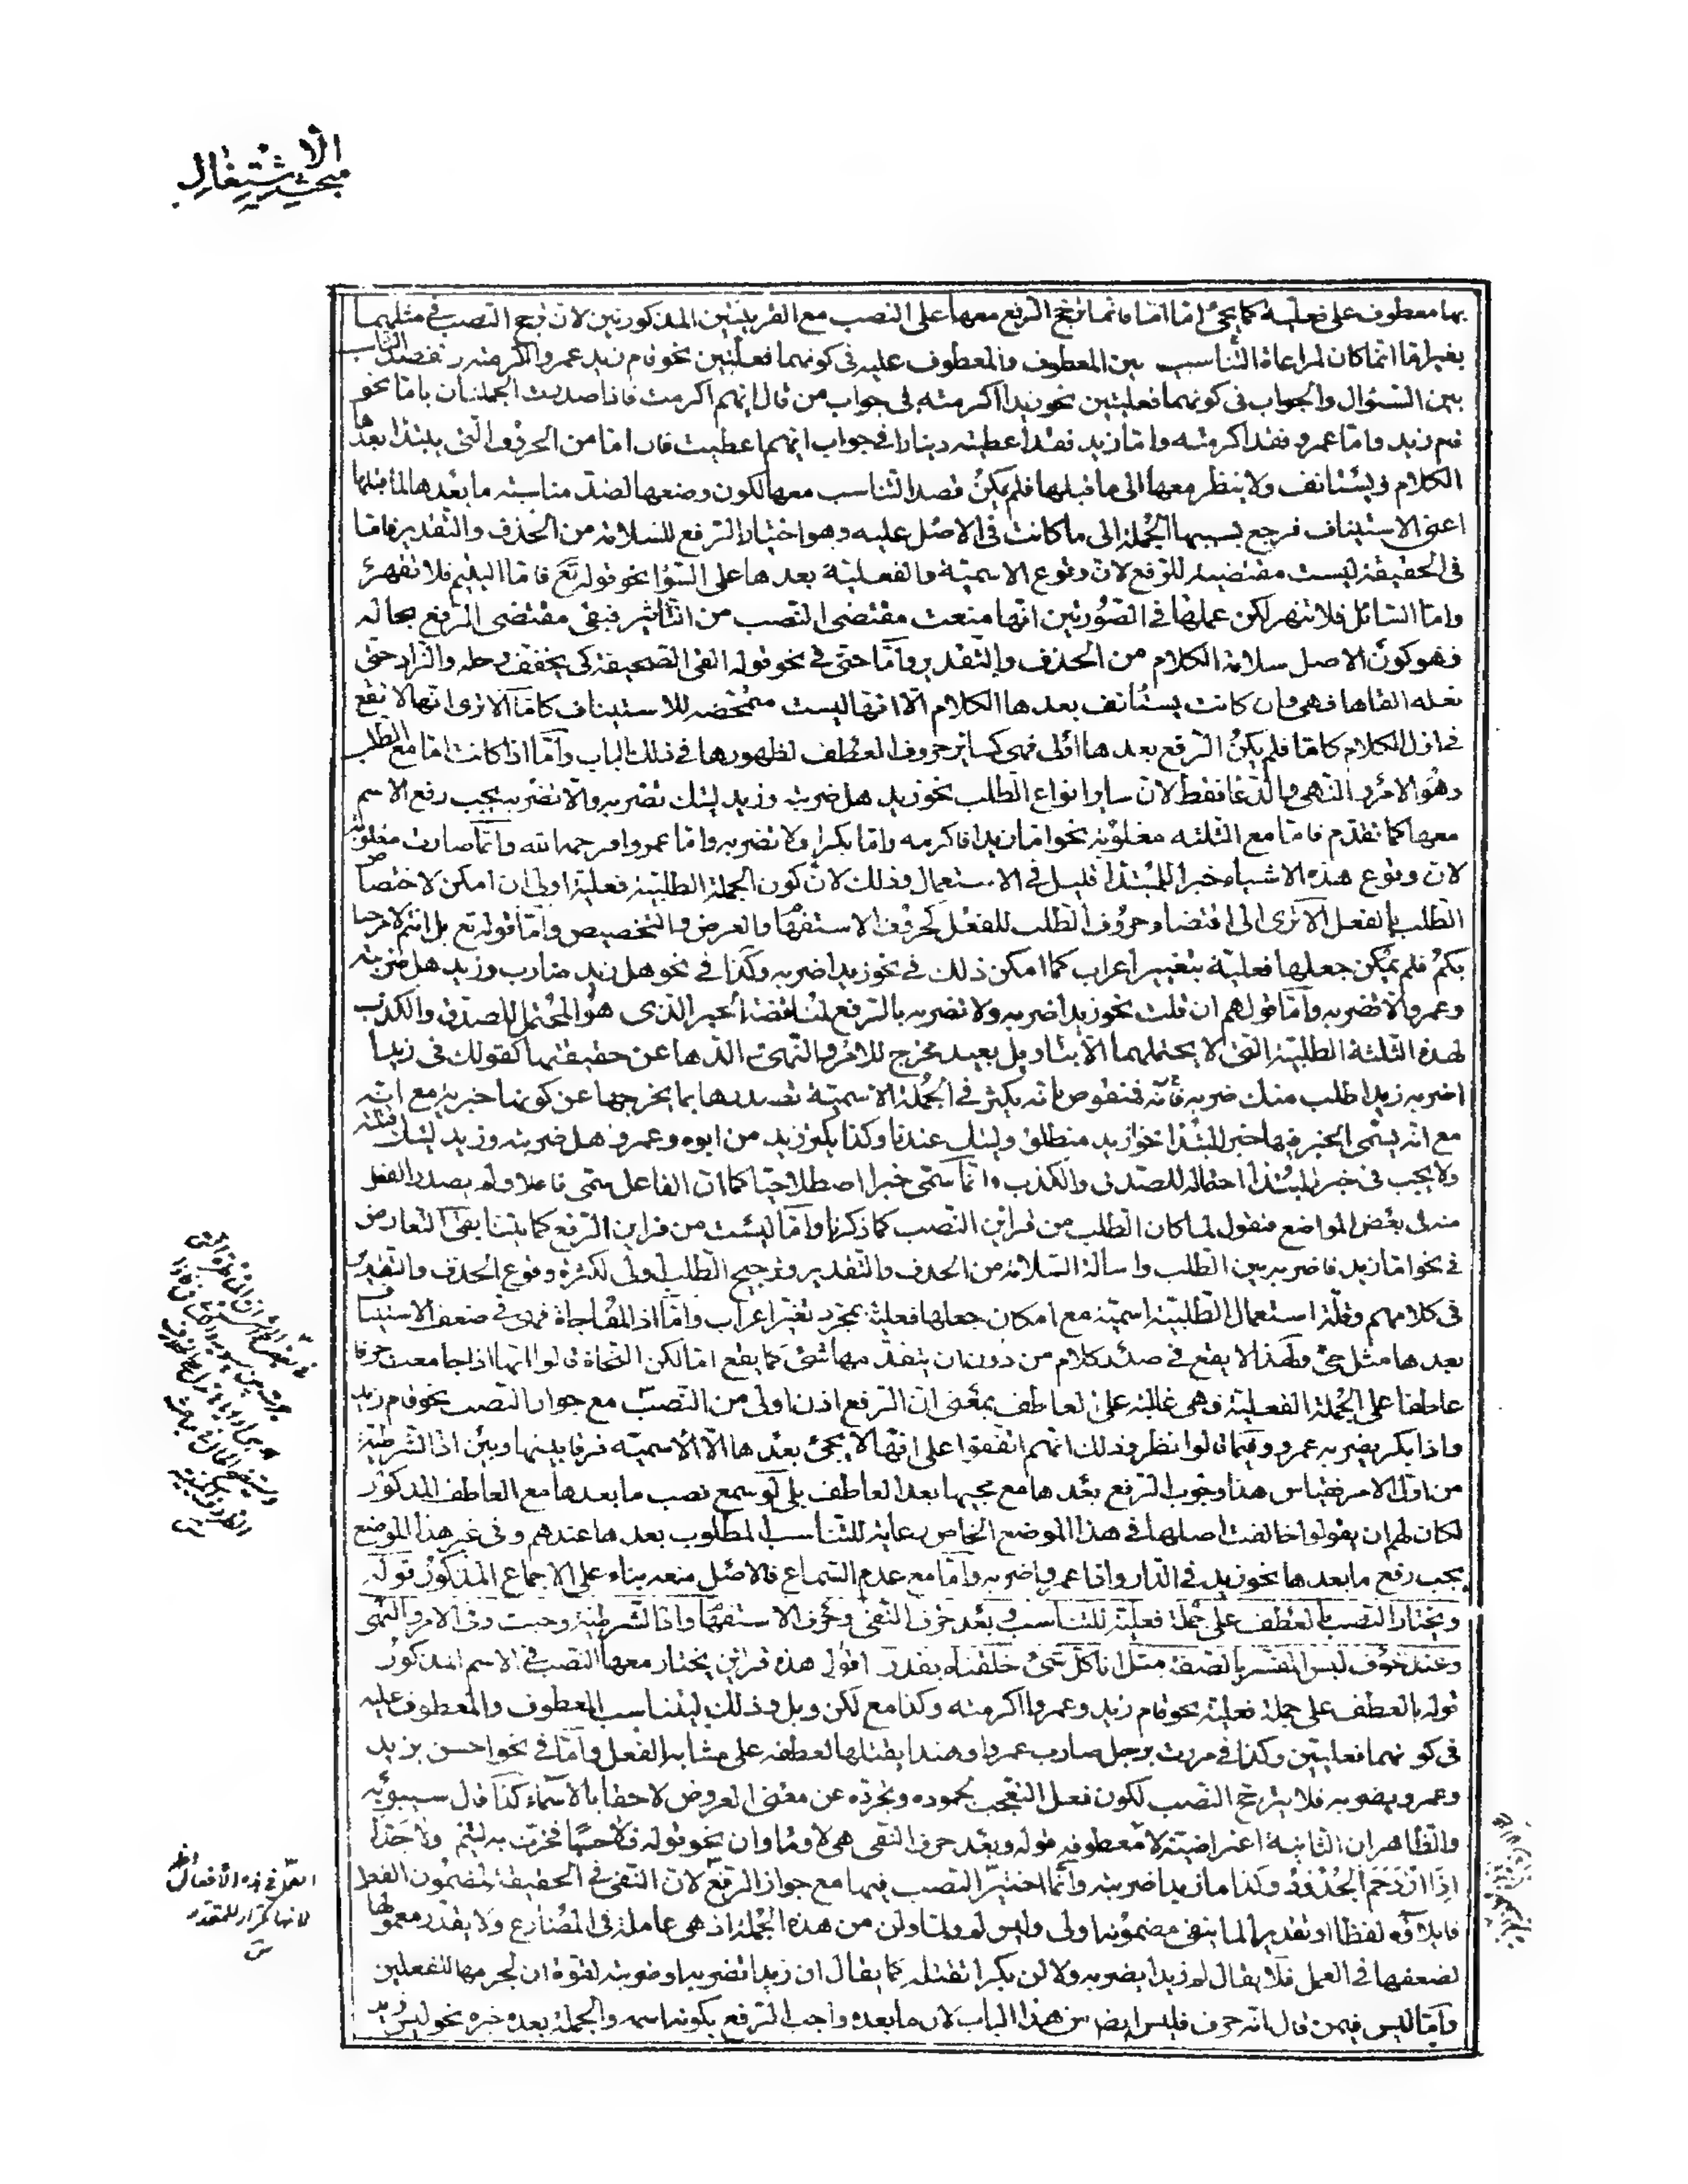 مبحث الاشتغال
بها معطوف على فعلية كما يجئ اما اما فانما ترجح الرفع معها على النصب مع القرينتين المذكورتين لان ترجح النصب في مثليهما
بغير اما انما كان لمراعاة التناسب بين المعطوف والمعطوف عليه في كونهما فعليتين نحو قام زيد وعمروا اكرمته ولقصد التناسب
بين السؤال والجواب في كونهما فعليتين نحو زيدا اكرمته في جواب من قال ايهم اكرمت فاذا صدرت الجملتان باما نحو
قام زيد واما عمرو فقد اكرمته واما زيد فقد اعطيته دينارا في جواب ايهما اعطيت فان اما من الحروف التى يبتدأ بعدها
الكلام ويستأنف ولا ينظر معها الى ما قبلها فلم يكن قصد التناسب معها لكون وضعها لضد مناسبة ما بعدها لما قبلها
اعنى الاستيناف فرجع بسببها الجملة الى ما كانت فى الاصل عليه وهو اختيار الرفع للسلامة من الحذف والتقدير فاما
فى الحقيقة ليست مقتضية للرفع لان وقوع الاسمية والفعلية بعدها على السواء نحو قوله تع فاما اليتيم فلا تقهر
واما السائل فلا تنهر لكن عملها في الصورتين انها منعت مقتضى النصب من التأثير فبقى مقتضى الرفع بحاله
وهو كون الاصل سلامة الكلام من الحذف والتقدير واما حتى في نحو قوله القى الصحيفة كى يخفف رحله والزاد حتى
نعله القاها فهى وان كانت يستأنف بعدها الكلام الا انها ليست متمحضة للاستيناف كاما الا ترى انها لا تقع
في اول الكلام كاما فلم يكن الرفع بعدها اولى فهى كساير حروف العطف لظهورها في ذلك الباب واما اذا كانت اما مع الطلب
وهو الامر والنهى والدعا فقط لان ساير انواع الطلب نحو زيد هل ضربته وزيد ليتك تضربه والا تضربه يجب رفع الاسم
معها كما تقدم فاما مع الثلثه مغلوبة نحو اما زيدا فاكرمه واما بكرا ولا تضربه واما عمروا فرحمه الله وانما صارت مغلوبة
لان وقوع هذه الاشياء خبرا للمبتدأ قليل في الاستعمال وذلك لان كون الجملة الطلبية فعلية اولى ان امكن لاختصاص
الطلب بالفعل الا ترى الى اقتضاء حروف الطلب للفعل كحروف الاستفهام والعرض والتخصيص واما قوله تع بل انتم لا مرحبا
بكم فلم يمكن جعلها فعلية بتغيير اعراب كما امكن ذلك في نحو زيدا اضربه وكذا في نحو هل زيد ضارب وزيد هل ضربته
وعمرو الا تضربه واما قولهم ان قلت نحو زيد اضربه ولا تضربه بالرفع لمناقضة الخبر الذى هو المحتمل للصدق والكذب
لهذه الثلثة الطلبية التى لا يحتملهما الا بتاويل بعيد مخرج للامر والنهى والدعا عن حقيقتهما كقولك في زيدا
اضربه زيد اطلب منك ضربه فانه فنقوض بانه يكثر في الجملة الاسمية تصديرها بما يخرجها عن كونها خبرية مع انه
مع انه يسمى الخبر فيها خبر المبتدأ نحو ازيد منطلق وليتك عندنا وكذا يكثر زيد من ابوه وعمرو هل ضربته وزيد ليتك قتلته
ولا يجب في خبر المبتدأ احتماله للصدق والكذب وانما سمى خبرا اصطلاحيا كما ان الفاعل سمى فاعلا وان لم يصدر الفعل
منه في بعض المواضع فنقول لما كان الطلب من قراين النصب كما ذكرنا واما ليست من قراين الرفع كما بينا بقى التعارض
في نحو اما زيد فاضربه بين الطلب واصالة السلامة من الحذف والتقدير وترجيح الطلب اولى لكثرة وقوع الحذف والتقدير
في كلامهم وقلة استعمال الطلبية اسمية مع امكان جعلها فعلية بمجرد تغير اعراب واما اذا المفاجاة فهى في ضعف الاستيناف
بعدها مثل حتى ولهذا لا يقع في صدر كلام من دون ان يتقدمها شئ كما يقع اما لكن النحاة قالوا انها اذا جامعت حرفا
عاطفا على الجملة الفعلية فهى غالبة على العاطف بمعنى ان الرفع اذن اولى من النصب مع جواز النصب نحو قام زيد
واذا بكر يضربه عمرو وفيما قالوا نظر وذلك انهم اتفقوا على انها لا يجئ بعدها الا الاسمية فرقا بينها وبين اذا الشرطية
من اول الامر فقياس هذا وجوب الرفع بعدها مع مجيئها بعد العاطف بلى لو سمع نصب ما بعدها مع العاطف المذكور
لكان لهم ان يقولوا خالفت اصلها في هذا الموضع الخاص رعاية للتناسب المطلوب بعدها عندهم وفى غير هذا الموضع
يجب رفع ما بعدها نحو زيد في الدار واذا عمرو اضربه واما مع عدم السماع فالاصل منعه بناء على الاجماع المذكور قوله
ويختار النصب بالعطف على جملة فعلية للتناسب وبعد حرف النفى وحرف الاستفهام واذا الشرطية وحيث وفى الامر والنهى
وعند خوف لبس المفسر بالصفة مثل انا كل شئ خلقناه بقدر اقول هذه قراين يختار معها النصب في الاسم المذكور
قوله بالعطف على جملة فعلية نحو قام زيد وعمروا اكرمته وكذا مع لكن وبل وذلك ليتناسب المعطوف والمعطوف عليه
فى كونهما فعليتين وكذا في مررت برجل ضارب عمروا وهندا يقتلها لعطفه على مشابه الفعل واما في نحو احسن بزيد
وعمرو يضربه فلا يترجح النصب لكون فعل التعجب لجموده وتجرده عن معنى العروض لاحقا بالاسماء كذا قال سيبويه
والظاهر ان الثانية اعتراضية لا معطوفة قوله وبعد حرف النفى هى لا وما وان نحو قوله فلا حسبا فخرت به لتيم ولا جدا
اذا ازدحم الجدود وكذا ما زيدا ضربته وانما اختير النصب فيها مع جواز الرفع لان النفى في الحقيقة لمضمون الفعل
فايلاؤه لفظا او تقديرا لما ينفى مضمونه اولى وليس لم ولما ولن من هذه الجملة اذ هى عاملة في المضارع ولا يقدر معمولها
لضعفها في العمل فلا يقال لم زيدا يضربه ولا لن بكرا تقتله كما يقال ان زيدا تضربه او ضربته لقوة ان لجزمها للفعلين
واما ليس فيمن قال انه حرف فليس ايض من هذا الباب لان ما بعده واجب الرفع بكونه اسمه والجملة بعده خبره نحو ليس زيد
لانها كتكرار للمقدر